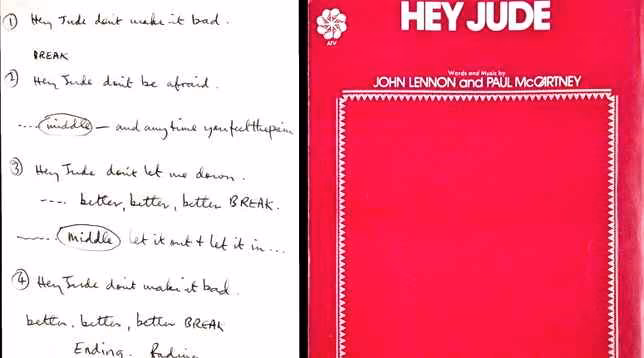 ① Hey Jude don't make it bad.
BREAK
② Hey Jude don't be afraid.
.... middle — and any time you feel the pain
③ Hey Jude don't let me down.
---- better, better, better BREAK.
middle let it out + let it in ...
④ Hey Jude don't make it bad.
better, better, better BREAK
Ending. Fading
HEY JUDE
ATV
Words and Music by
JOHN LENNON and PAUL McCARTNEY